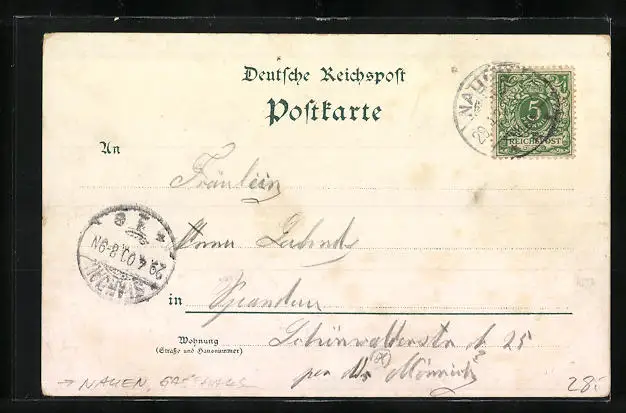 Deutsche Reichspost
Postkarte
NAU
5
REICHSPOST
An
Fräulein
Anna
29.4.00 8-9N
SPANDAU
in Spandau
Wohnung
(Straße und Hausnummer)
Schönwalderstr. 25
per Adr.
→ NAUEN, GASTHAUS
28.-